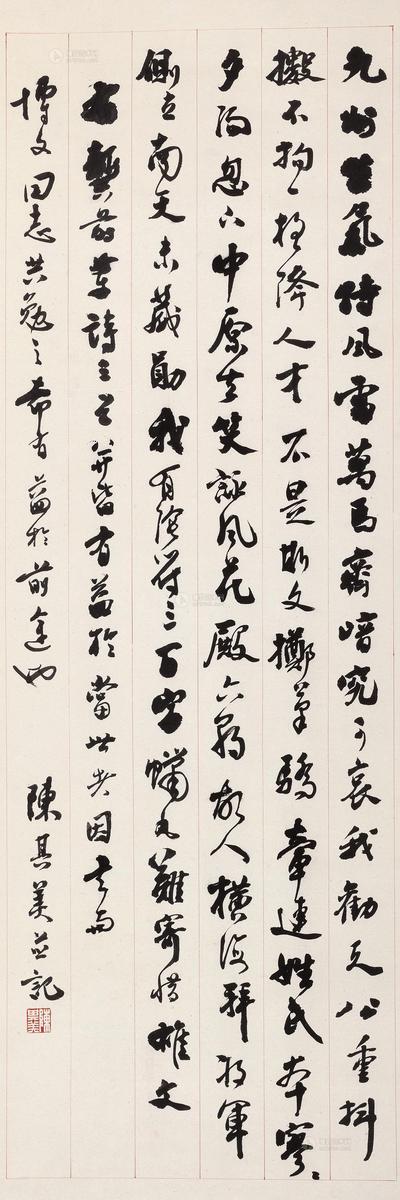 九州生氣恃風雷萬馬齊喑究可哀我勸天公重抖
擻不拘一格降人才不是斯文擲筆驕牽連姓氏本寥々
夕陽忽下中原去笑詠風花殿六朝故人橫海拜將軍
側立南天未蕆勛我有陰符三百字蠟丸難寄惜雄文
右龔前輩詩三首并皆有益於當世者因書與
博文同志共勉之希有益於前途也 陳其美並記